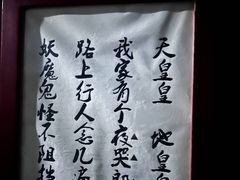 天皇皇 地皇皇
我家有个夜哭郎
路上行人念几
妖魔鬼怪不阻挡